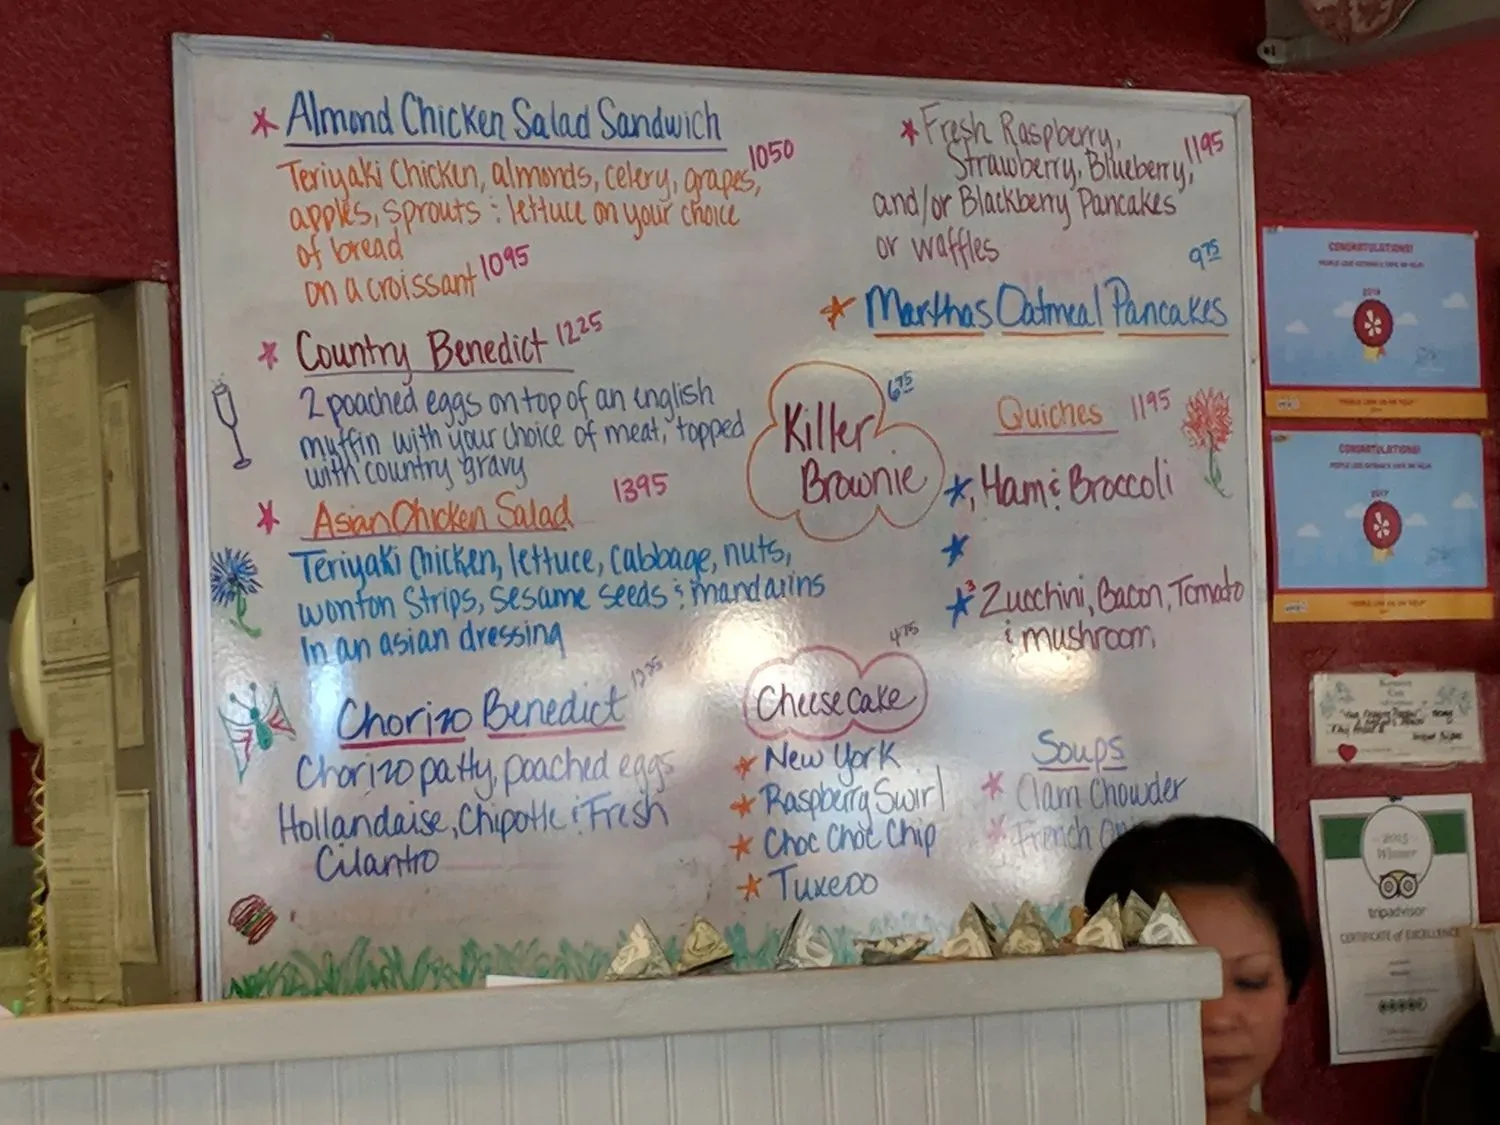 Almond Chicken Salad Sandwich
1050
Teriyaki Chicken, almonds, celery, grapes,
apples, sprouts & lettuce on your choice
of bread
on a croissant 1095
Country Benedict 1225
2 poached eggs on top of an english
muffin with your choice of meat, topped
with country gravy
Asian Chicken Salad 1395
Teriyaki Chicken, lettuce, cabbage, nuts,
wonton strips, sesame seeds & mandarins
In an asian dressing
Chorizo Benedict
Chorizo patty, poached eggs
Hollandaise, Chipotle & Fresh
Cilantro
Fresh Raspberry,
Strawberry, Blueberry, 1195
and/or Blackberry Pancakes
or waffles
975
Marthas Oatmeal Pancakes
Killer 675
Brownie
Quiches 1195
Ham & Broccoli
3 Zucchini, Bacon, Tomato
& mushroom
475
Cheesecake
New York
Raspberry Swirl
Choc Choc Chip
Tuxedo
Soups
Clam Chowder
French
CONGRATULATIONS!
CONGRATULATIONS!
2017
2015
Winner
tripadvisor
CERTIFICATE of EXCELLENCE